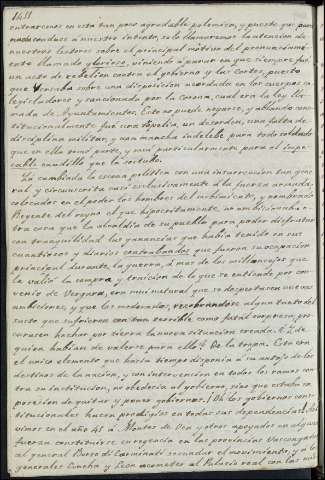 1411
entrarnos en esta tan poco agradable polemica, y puesto que para
nada conduce a nuestro intento, solo llamaremos la atencion de
nuestros lectores sobre el principal motivo del pronunciamiento
llamado glorioso, viniendo á parar en que siempre fué
un acto de rebelion contra el gobierno y las Cortes, puesto
que versaba sobre una disposicion acordada en los cuerpos co-
legisladores y sancionada por la corona, cual era la ley lla-
mada de Ayuntamientos. Esto no puede negarse, y ablando cons-
titucionalmente fué una tropelia, un desorden, una falta de
disciplina militar, y una mancha indeleble para todo soldado
que en ello tomó parte, y mui particularmente para el impe-
cable caudillo que la sostubo.
La cambiada la escena politica con una insurreccion tan gene-
ral y circunscrita casi esclusivamente á la fuerza armada,
colocados en el poder los hombres del embuchado, y nombrado
Regente del reyno el que hipocritamente, no ambicionaba
otra cosa que la alcaldia de su pueblo para poder disfrutar
con tranquilidad las ganancias que habia tenido en sus
cuantiosos y diarios contrabandos que fueron su ocupacion
principal durante la guerra, á mas de los millonejos que
le valió la compra y traicion de lo que se entiende por con-
venio de Vergara, era mui natural que se despertasen nuevas
ambiciones, y que los moderados, recobrandose algun tanto del
susto que sufrieron con tan terrible como fatal sorpresa, pro-
curasen hechar por tierra la nueva situacion creada. ¿Y de
quien habian de valerse para ello? De la tropa. Esta era
el unico elemento que hacia tiempo disponia á su antojo de los
destinos de la nacion, y con intervencion en todos los ramos con-
tra su institucion, no obedecia al gobierno, sino que estaba en
posesion de quitar y poner gobiernos. ¡Oh los gobiernos cons-
titucionales hacen prodigios en todas sus dependencias! Asi
vimos en el año 41 á Montes de Oca y otros apoyados en alguna
fuerza constituirse en regencia en las provincias Vascongadas
al general Borso di Carminati secundar el movimiento, y á los
generales Concha y Leon acometer al Palacio real con las mis-